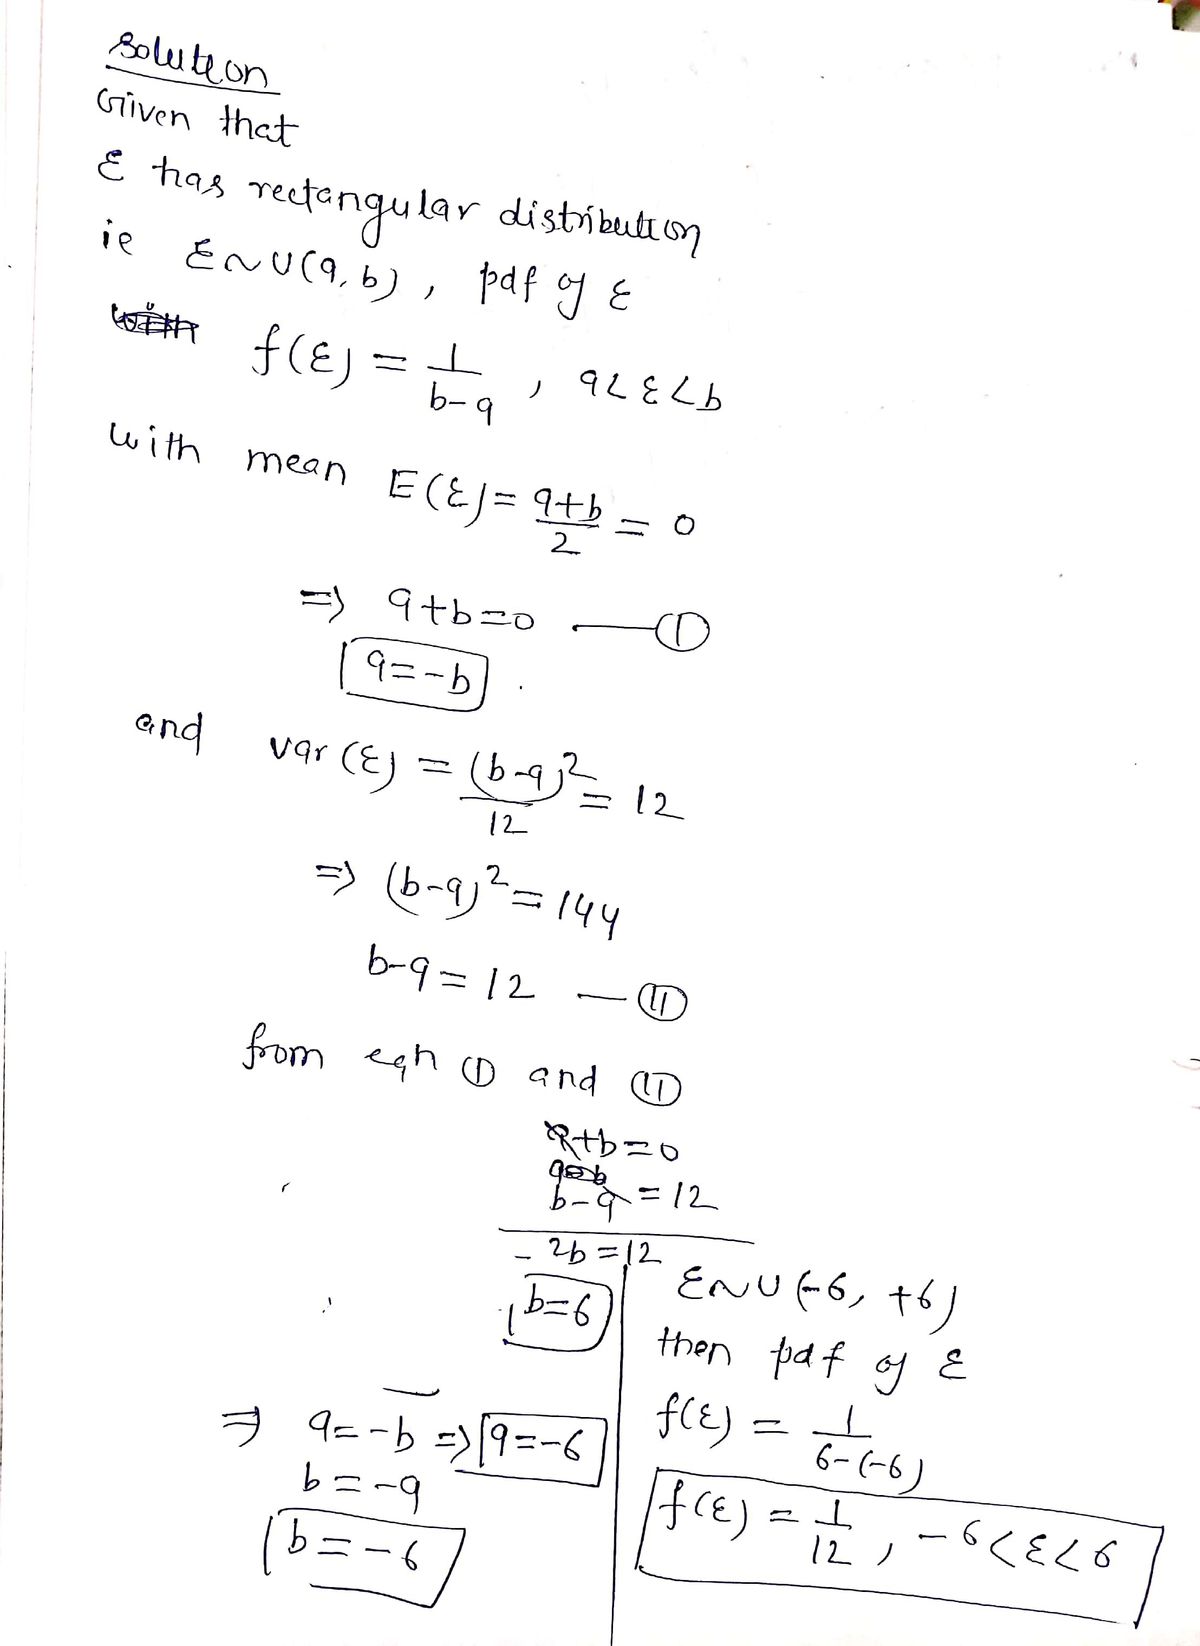 Solution
Given that
ε has rectangular distribution
ie ε~U(a,b), pdf of ε
f(ε) = 1/(b-a), a<ε<b
with mean E(ε) = (a+b)/2 = 0
=> a+b=0 —①
a=-b
and var(ε) = (b-a)²/12 = 12
=> (b-a)² = 144
b-a = 12 —⑪
from eqn ① and ⑪
a+b=0
b-a = 12
- 2b = 12
b=6
=> a=-b => a=-6
b=-a
b=-6
ε~U(-6, +6)
then pdf of ε
f(ε) = 1/(6-(-6))
f(ε) = 1/12, -6<ε<6